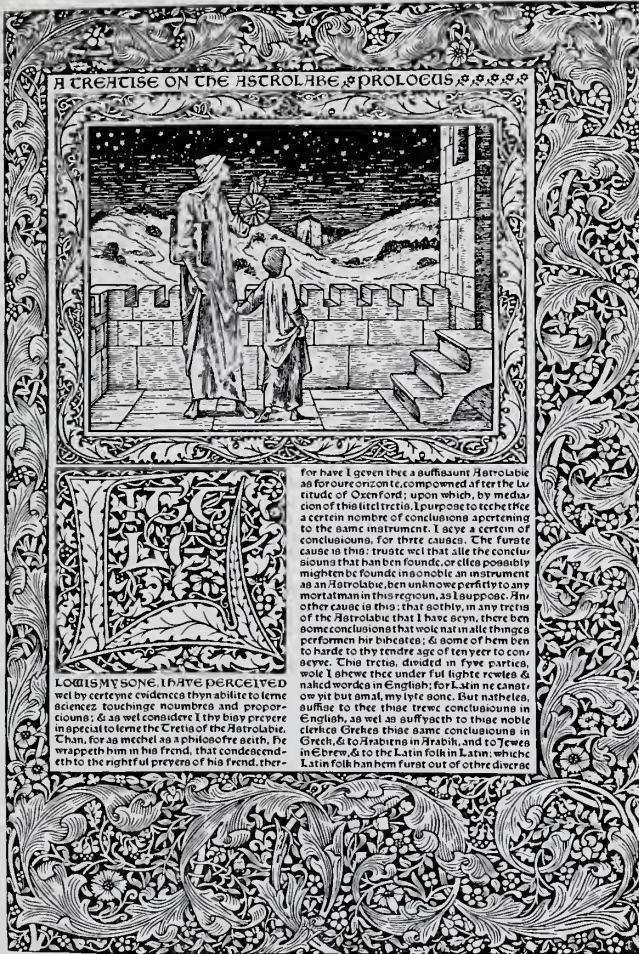 A TREATISE ON THE ASTROLABE PROLOGUS
LITEL
LOWIS MY SONE, I HAVE PERCEIVED
wel by certeyne evidences thyn abilite to lerne
sciencez touchinge noumbres and propor-
ciouns; & as wel considere I thy bisy preyere
in special to lerne the Tretis of the Astrolabie.
Than, for as mechel as a philosofre seith, he
wrappeth him in his frend, that condescend-
eth to the rightful preyers of his frend, ther-
for have I geven thee a suffisaunt Astrolabie
as for oure orizonte, compowned after the la-
titude of Oxenford; upon which, by media-
cion of this litel tretis, I purpose to teche thee
a certein nombre of conclusions apertening
to the same instrument. I seye a certein of
conclusiouns, for three causes. The furste
cause is this: truste wel that alle the conclu-
siouns that han ben founde, or elles possibly
mighten be founde in so noble an instrument
as an Astrolabie, ben unknowe perfitly to any
mortal man in this regioun, as I suppose. An-
other cause is this; that sothly, in any tretis
of the Astrolabie that I have seyn, there ben
some conclusions that wole nat in alle thinges
performen hir bihestes; & some of hem ben
to harde to thy tendre age of ten yeer to con-
seyve. This tretis, divided in fyve parties,
wole I shewe thee under ful lighte rewles &
naked wordes in English; for Latin ne canst-
ow yit but smal, my lyte sone. But natheles,
suffise to thee thise trewe conclusiouns in
English, as wel as suffyseth to thise noble
clerkes Grekes thise same conclusiouns in
Greek, & to Arabiens in Arabik, and to Jewes
in Ebrew, & to the Latin folk in Latin; whiche
Latin folk han hem furst out of othre diverse